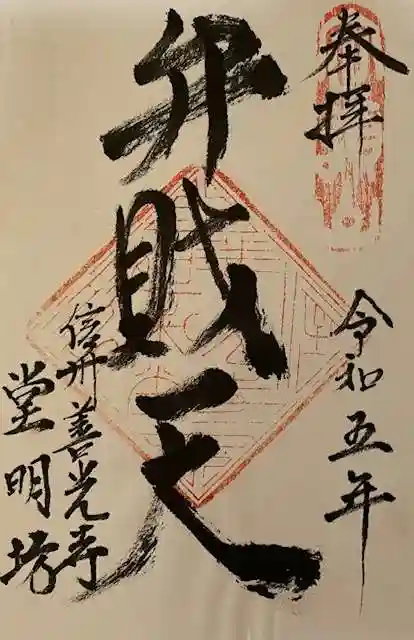 奉拝
令和五年
弁財天
信州善光寺
堂明坊